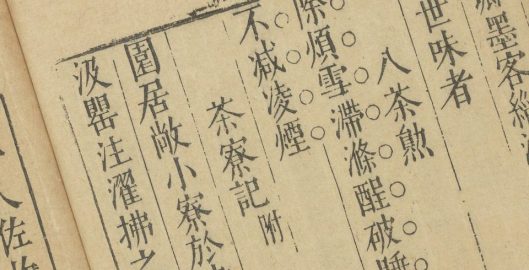 墨客緇
世味者
八茶勳
除煩雪滯滌醒破睡
不减凌煙
茶寮記 附
園居敞小寮於
汲罌注濯拂之
人佐